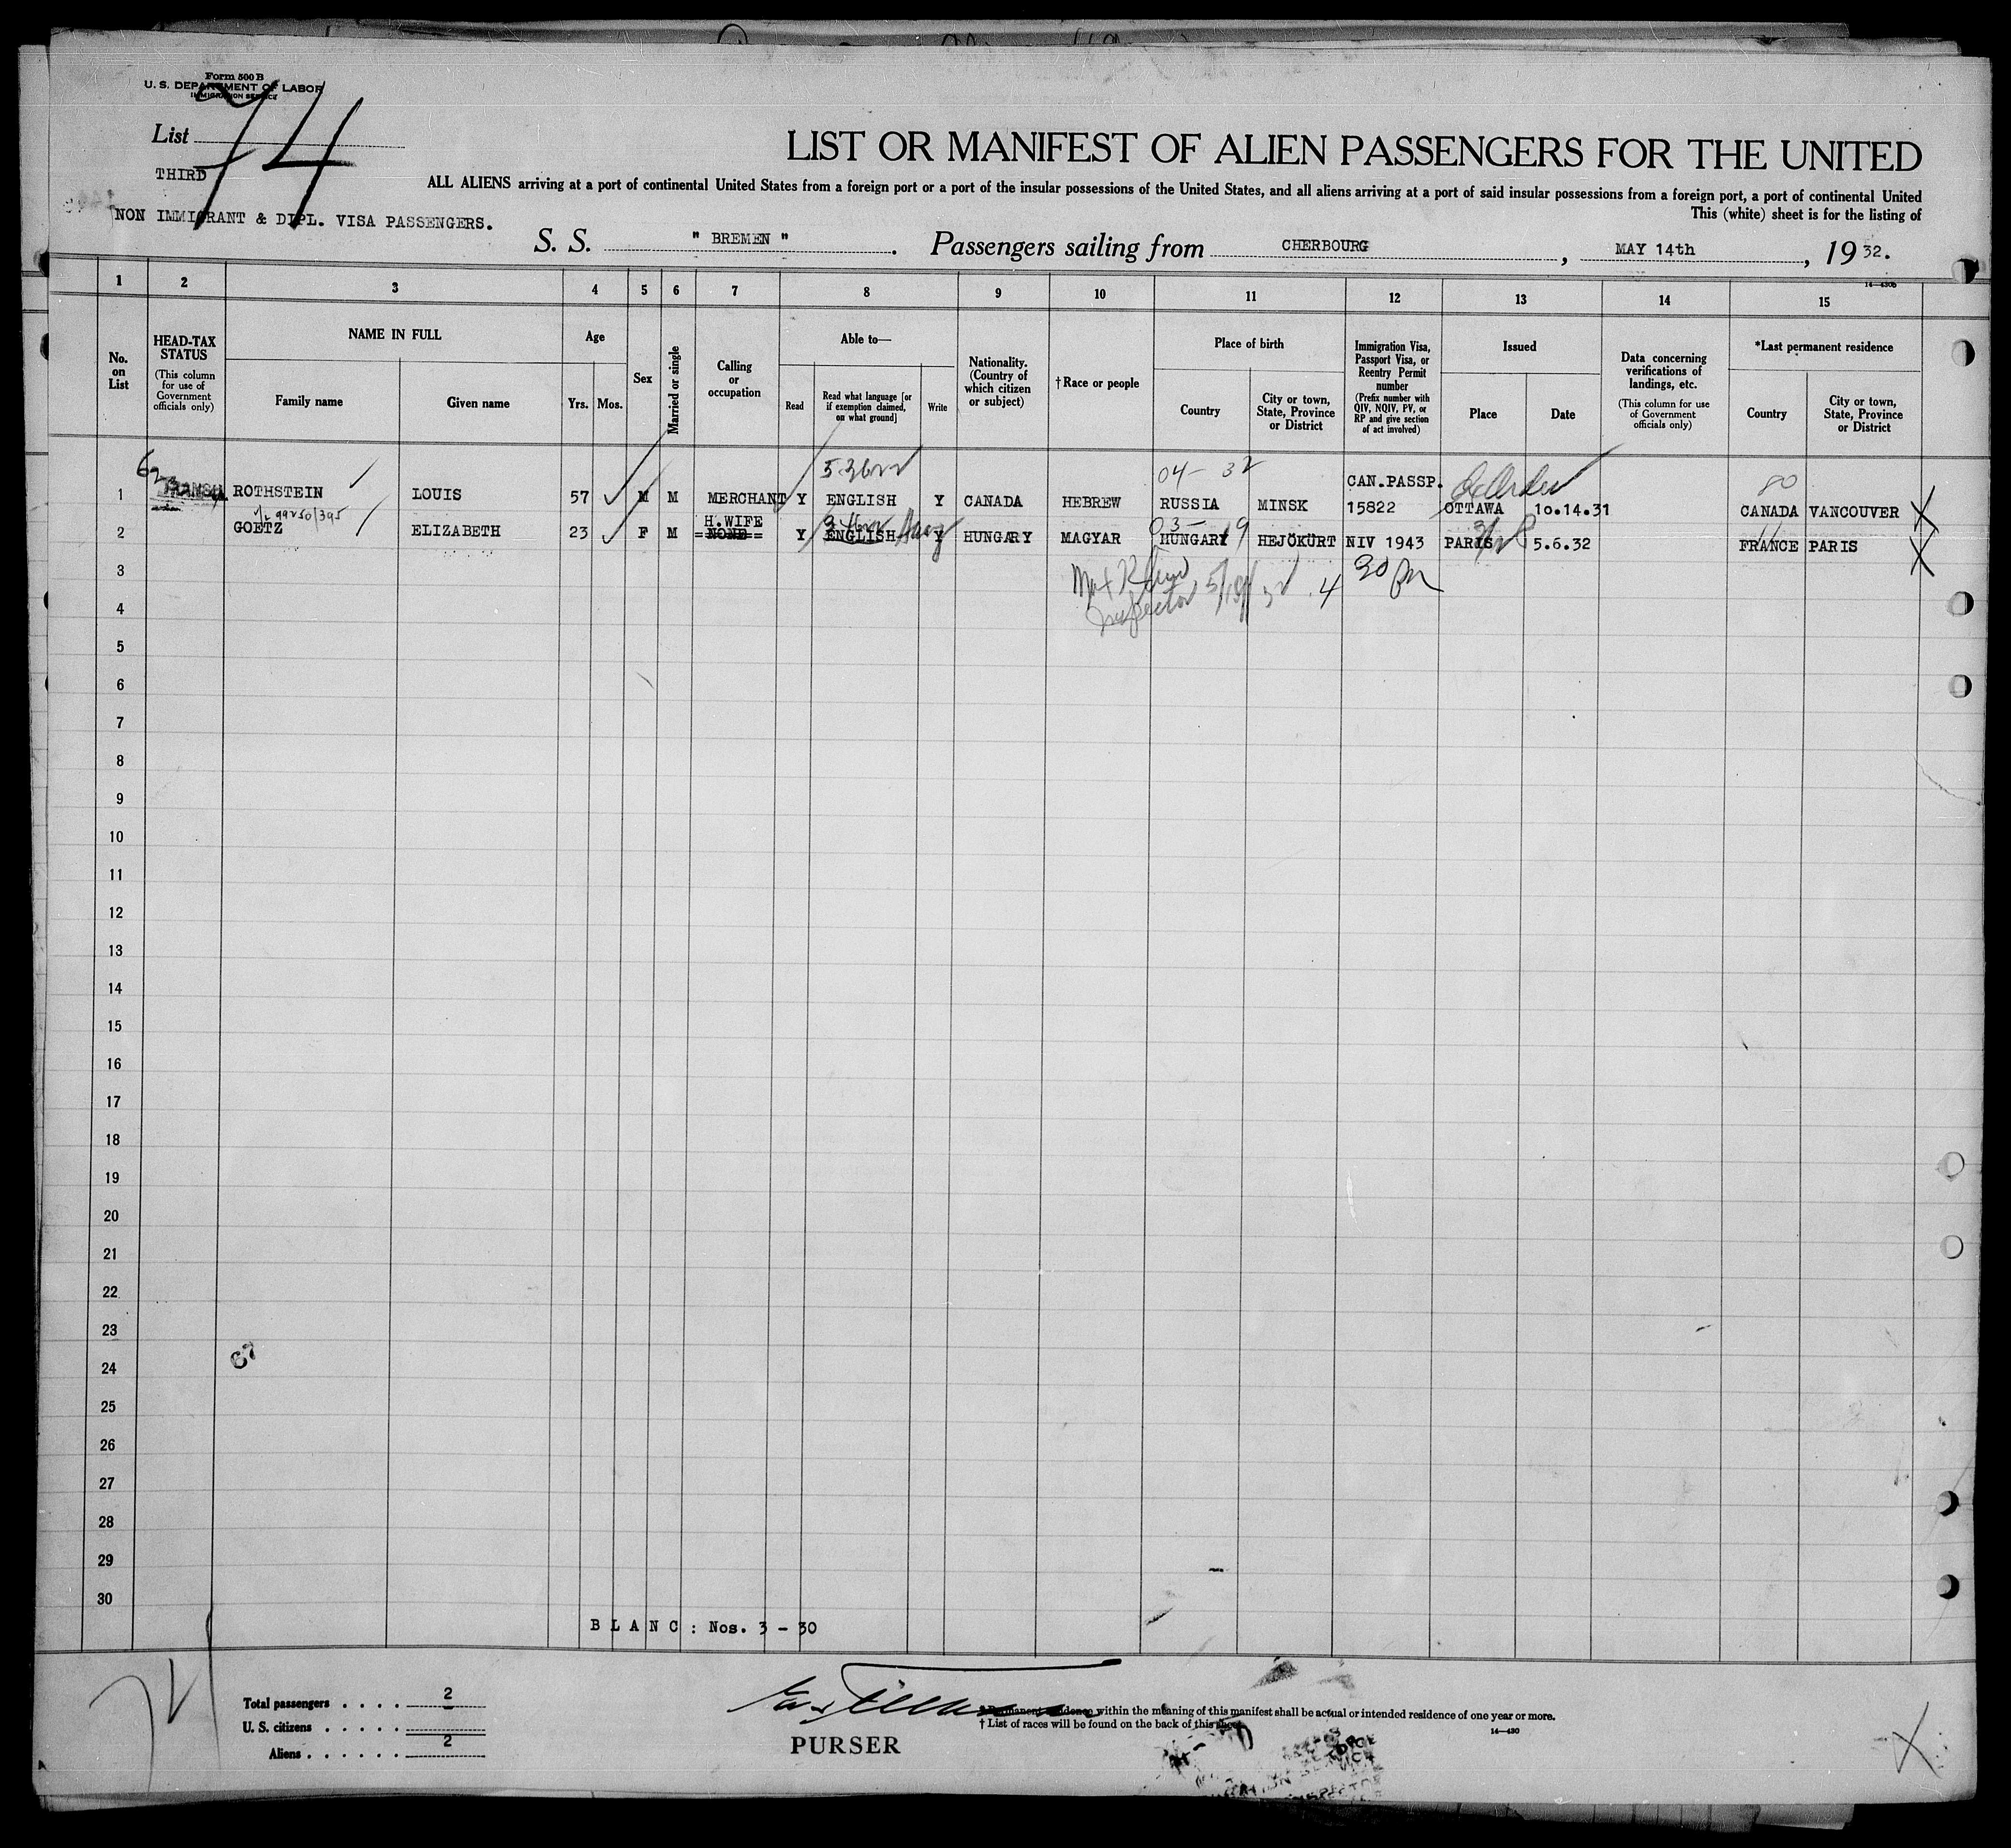 Form 500 B
U. S. DEPARTMENT OF LABOR
IMMIGRATION SERVICE
List 74
THIRD
NON IMMIGRANT & DIPL. VISA PASSENGERS.
LIST OR MANIFEST OF ALIEN PASSENGERS FOR THE UNITED
ALL ALIENS arriving at a port of continental United States from a foreign port or a port of the insular possessions of the United States, and all aliens arriving at a port of said insular possessions from a foreign port, a port of continental United
This (white) sheet is for the listing of
S. S. " BREMEN ". Passengers sailing from CHERBOURG, MAY 14th, 19 32.
14—430b
1 2 3 4 5 6 7 8 9 10 11 12 13 14 15
No. on List
HEAD-TAX STATUS (This column for use of Government officials only)
NAME IN FULL
Family name Given name
Age
Yrs. Mos.
Sex
Married or single
Calling or occupation
Able to—
Read Read what language [or if exemption claimed, on what ground] Write
Nationality. (Country of which citizen or subject)
†Race or people
Place of birth
Country City or town, State, Province or District
Immigration Visa, Passport Visa, or Reentry Permit number (Prefix number with QIV, NQIV, PV, or RP and give section of act involved)
Issued
Place Date
Data concerning verifications of landings, etc. (This column for use of Government officials only)
*Last permanent residence
Country City or town, State, Province or District
04- 32
80
CAN.PASSP.
1 ROTHSTEIN LOUIS 57 M M MERCHANT Y ENGLISH Y CANADA HEBREW RUSSIA MINSK 15822 OTTAWA 10.14.31 CANADA VANCOUVER X
99250/395
H.WIFE
03- 9
2 GOETZ ELIZABETH 23 F M NONE Y ENGLISH Y HUNGARY MAGYAR HUNGARY HEJÖKÜRT NIV 1943 PARIS 5.6.32 FRANCE PARIS X
3
Inspector
4
5
6
7
8
9
10
11
12
13
14
15
16
17
18
19
20
21
22
23
67
24
25
26
27
28
29
30
B L A N C : Nos. 3 - 30
Total passengers . . . . 2
U. S. citizens . . . . .
Aliens . . . . . . 2
PURSER
* Permanent residence within the meaning of this manifest shall be actual or intended residence of one year or more.
† List of races will be found on the back of this sheet.
14—430
X